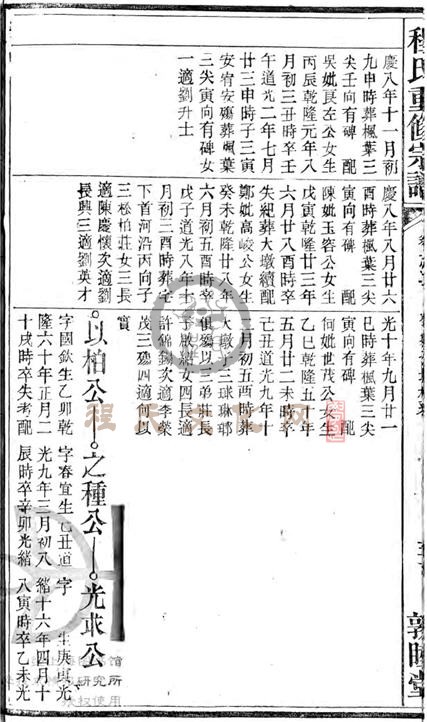 程氏重修宗譜
敦睦堂
慶八年十一月初
九申時葬楓葉三
尖壬向有碑 配
吳妣良左公女生
丙辰乾隆元年八
月初三丑時卒壬
午道光二年七月
廿三申時子三寅
安宥安殤葬楓葉
三尖寅向有碑女
一適劉升士
慶八年八月廿六
酉時葬楓葉三尖
寅向有碑 配
陳妣玉容公女生
戊寅乾隆廿三年
六月廿八酉時卒
失紀葬大墩續配
鄭妣高峻公女生
癸未乾隆廿八年
六月初五酉時卒
戊子道光八年十
月初三酉時葬宅
下首河沿丙向子
三松柏莊女三長
適陳慶懷次適劉
長興三適劉英才
光十年九月廿八
巳時葬楓葉三尖
寅向有碑 配
何妣世茂公女生
乙巳乾隆五十年
五月廿二未時卒
己丑道光九年十
一月初五酉時葬
大墩子三球琳瑯
俱殤以三弟莊長
子啟緒女四長適
許錦 次適李榮
茂三殤四適何以
賓
以柏公
字國欽生乙卯乾
隆六十年正月二
十戌時卒失考配
之種公
字春宜生己丑道
光九年三月初八
辰時卒辛卯光緒
光求公
字 生庚寅光
緒十六年四月十
八寅時卒乙未光
研究所
权使用